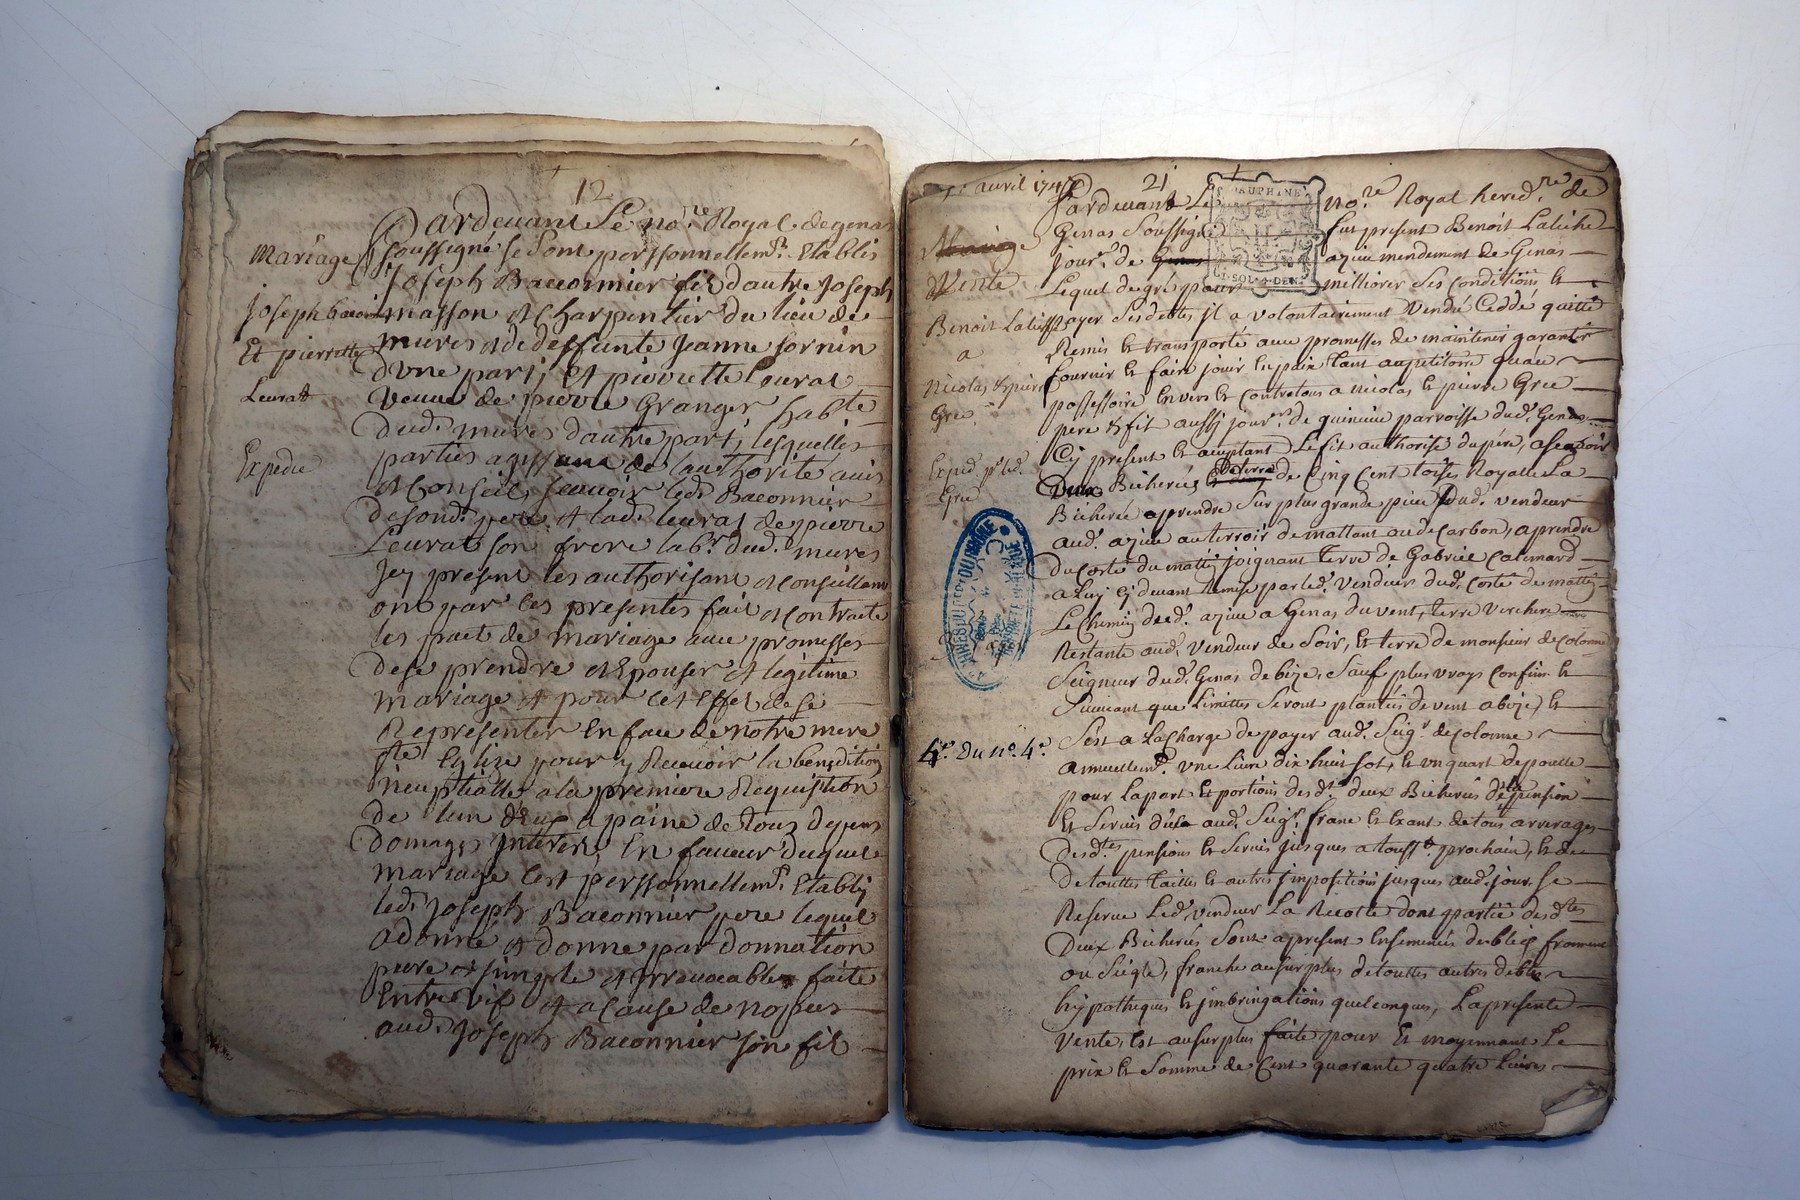 12
Pardevant Le no.re Royal de genas
soussigné se sont perssonnellem.t Etablis
Joseph Baconnier fils d'autre Joseph
masson et Charpentier du lieu de
mures et de deffunte Jeanne
d'une part, Et pierrette Leurat
veuve de pierre Granger hab.te
dud. mures d'autre part, lesquelles
parties agissant de l'authorité avis
et Conseil, scauoir led. Baconnier
de sond. pere et lad. leurat de pierre
Leurat son frere lab.r dud. mures
Jcy present les authorisant et conseillant
ont par ces presentes fait et contracté
les pact de mariage avec promesses
de se prendre et Epouser et legitime
mariage et pour cet effet de se
Representer En face de notre mere
s.te Eglize pour y Recevoir la benediction
neuptialle a la premiere Requisition
de l'un d'Eux a paine de tous depens
domages interets, En faveur duquel
mariage c'est perssonnellem.t Etably
led. Joseph Baconnier pere lequel
a donné et donne par donnation
pure et simple et irrevocable faite
Entre vif et a cause de nopces
aud. Joseph Baconnier son fils
Mariage
Joseph
Et pierrette
Leurat
Expedié
avril 21
Pardevant Le no.re Royal hered.re de
Genas Soussigné fut present Benoit
jour.r de Genas azieu mendement de Genas
Lequel de gré pour milliorer ses conditions et
payer ses dettes jl a volontairement vendu Ceddé quitté
Remis et transporté avec promesses de maintenir garantir
fournir et faire jouir En paix tant au petitoire qu'au
possessoire Envers et contre tous a nicolas et pierre Gree
pere & fils aussy jour.rs de parroisse dud. Genas
Cy present et acceptant Le fils authorisé du pere, a scavoir
Deux Bicherées de Cinq Cent toise Royalle La
Bicherée a prendre sur plus grande piece dud. vendeur
aud. azieu au terroir de mattant ou de Carbon, a prendre
du costé du joignant terre de Gabriel
a Luy cy devant Remise par led. vendeur dud. Coste de
Le Chemin dud. azieu a Genas du vent, terre verchere
Restante aud. vendeur de soir, Et terre de monsieur de colonne
Seigneur dud. Genas de bize, sauf plus vrays confins et
suivant que Limittes seront plantées de vent a bize, et
s'est a La charge de payer aud. Seig.r de colonne
annuellem.t une livre dix huit sols, et un quart de poulle
pour la part et portions des d. deux Bicherées de pension
Et servis d'ue aud. Seig.r franc et Exant de tous arrerages
desd.tes pensions et servis jusques a touss.t prochain, et de
de touttes tailles et autres jmpositions jusques aud. jour. se
Reserve Led. vendeur La Recolte dont partie desd.tes
Deux Bicherées sont a present Ensemencées de bled froment
ou seigle, franche au surplus de touttes autres debtes
hypotheques et jmbringations quelconques, La presente
vente, est au surplus faite pour Et moyennant Le
prix et somme de Cent quarante quatre Livres
Vente
Benoit
a
Nicolas & pierre
Gree
DAUPHINE
4.e Du n.o 4.e